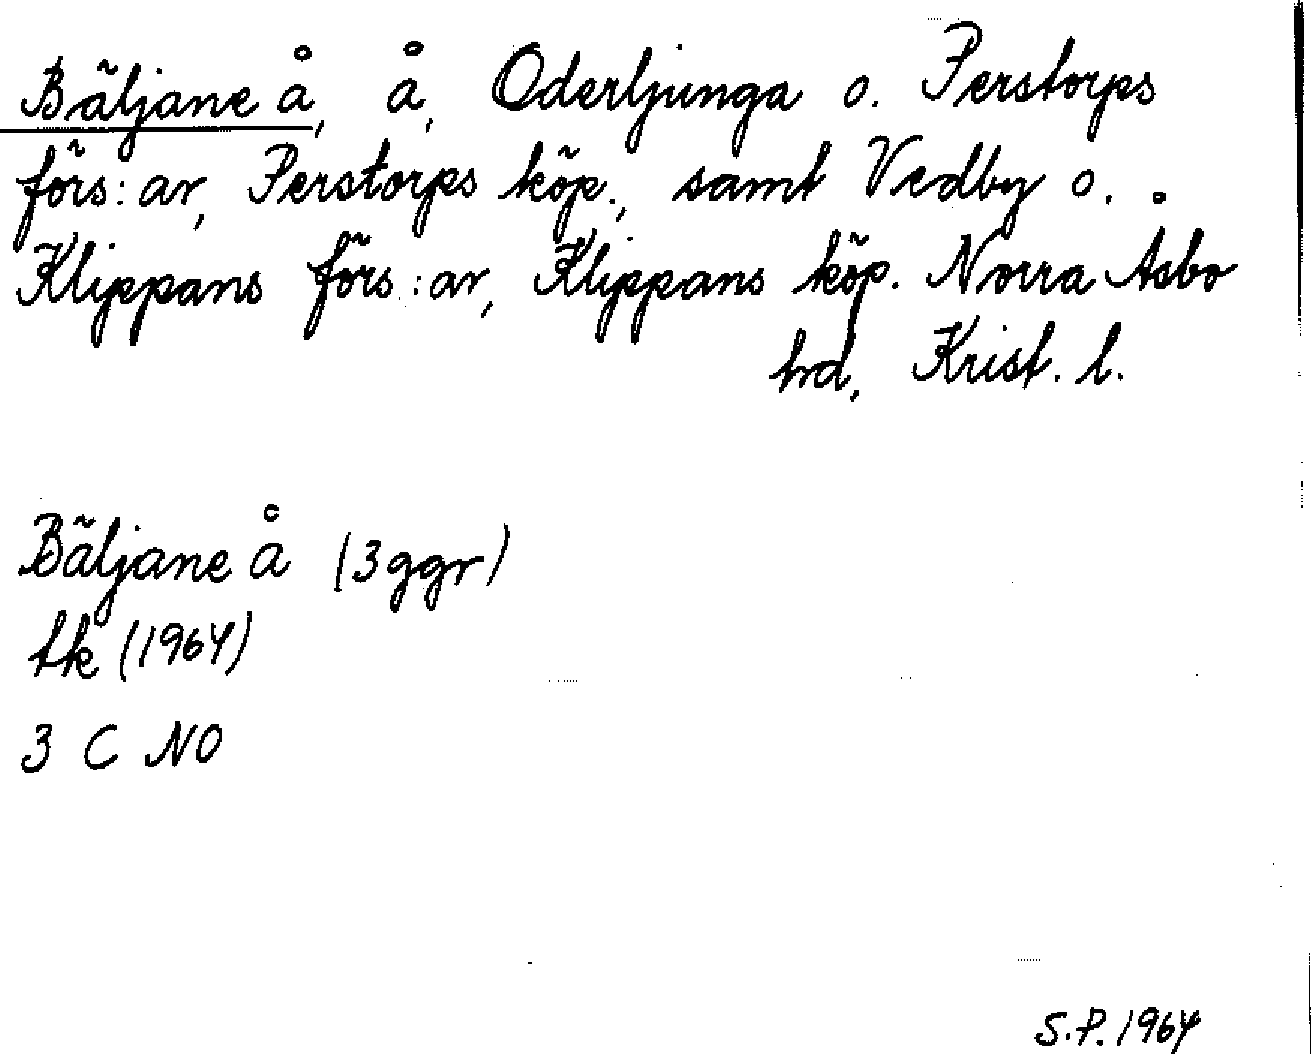 Bäljane å, å, Oderljunga o. Perstorps
förs:ar, Perstorps köp., samt Vedby o.
Klippans förs:ar, Klippans köp. Norra Åsbo
hd, Krist. l.
Bäljane å (3 ggr)
tk (1964)
3 C NO
S.P. 1964